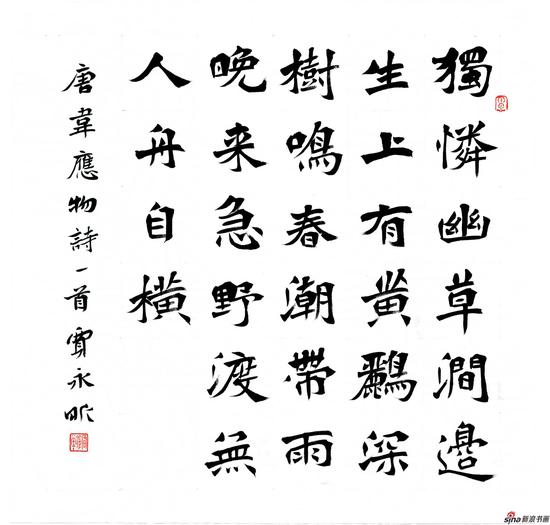 獨憐幽草澗邊
生上有黄鸝深
樹鳴春潮帶雨
晚来急野渡無
人舟自横
唐韋應物詩一首 永
sina新浪书画